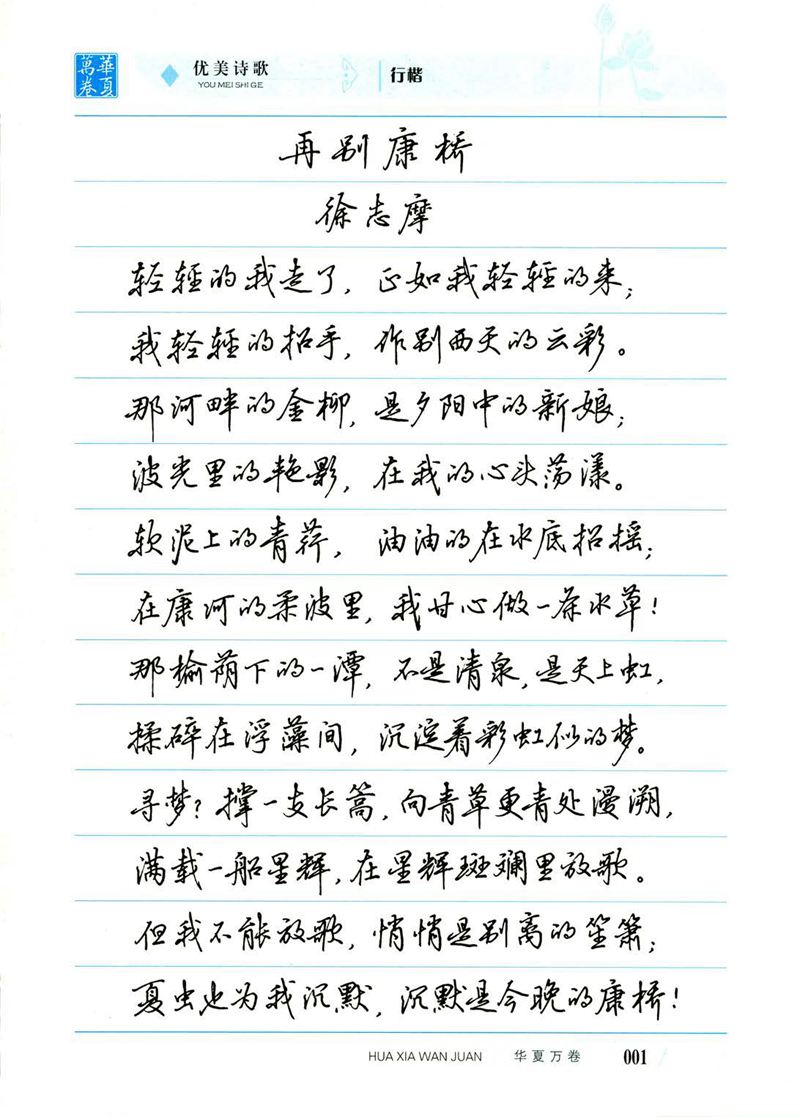 華夏萬卷
优美诗歌
YOU MEI SHI GE
行楷
再别康桥
徐志摩
轻轻的我走了，正如我轻轻的来；
我轻轻的招手，作别西天的云彩。
那河畔的金柳，是夕阳中的新娘；
波光里的艳影，在我的心头荡漾。
软泥上的青荇，油油的在水底招摇；
在康河的柔波里，我甘心做一条水草！
那榆荫下的一潭，不是清泉，是天上虹，
揉碎在浮藻间，沉淀着彩虹似的梦。
寻梦？撑一支长篙，向青草更青处漫溯，
满载一船星辉，在星辉斑斓里放歌。
但我不能放歌，悄悄是别离的笙箫；
夏虫也为我沉默，沉默是今晚的康桥！
HUA XIA WAN JUAN 华夏万卷 001